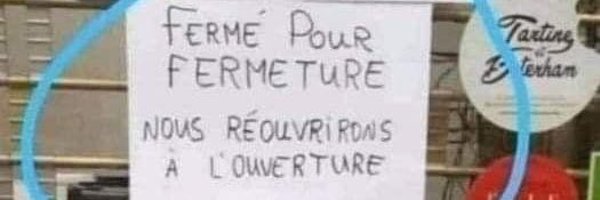 FERMÉ POUR
FERMETURE
NOUS RÉOUVRIRONS
À L'OUVERTURE
Tartine
et